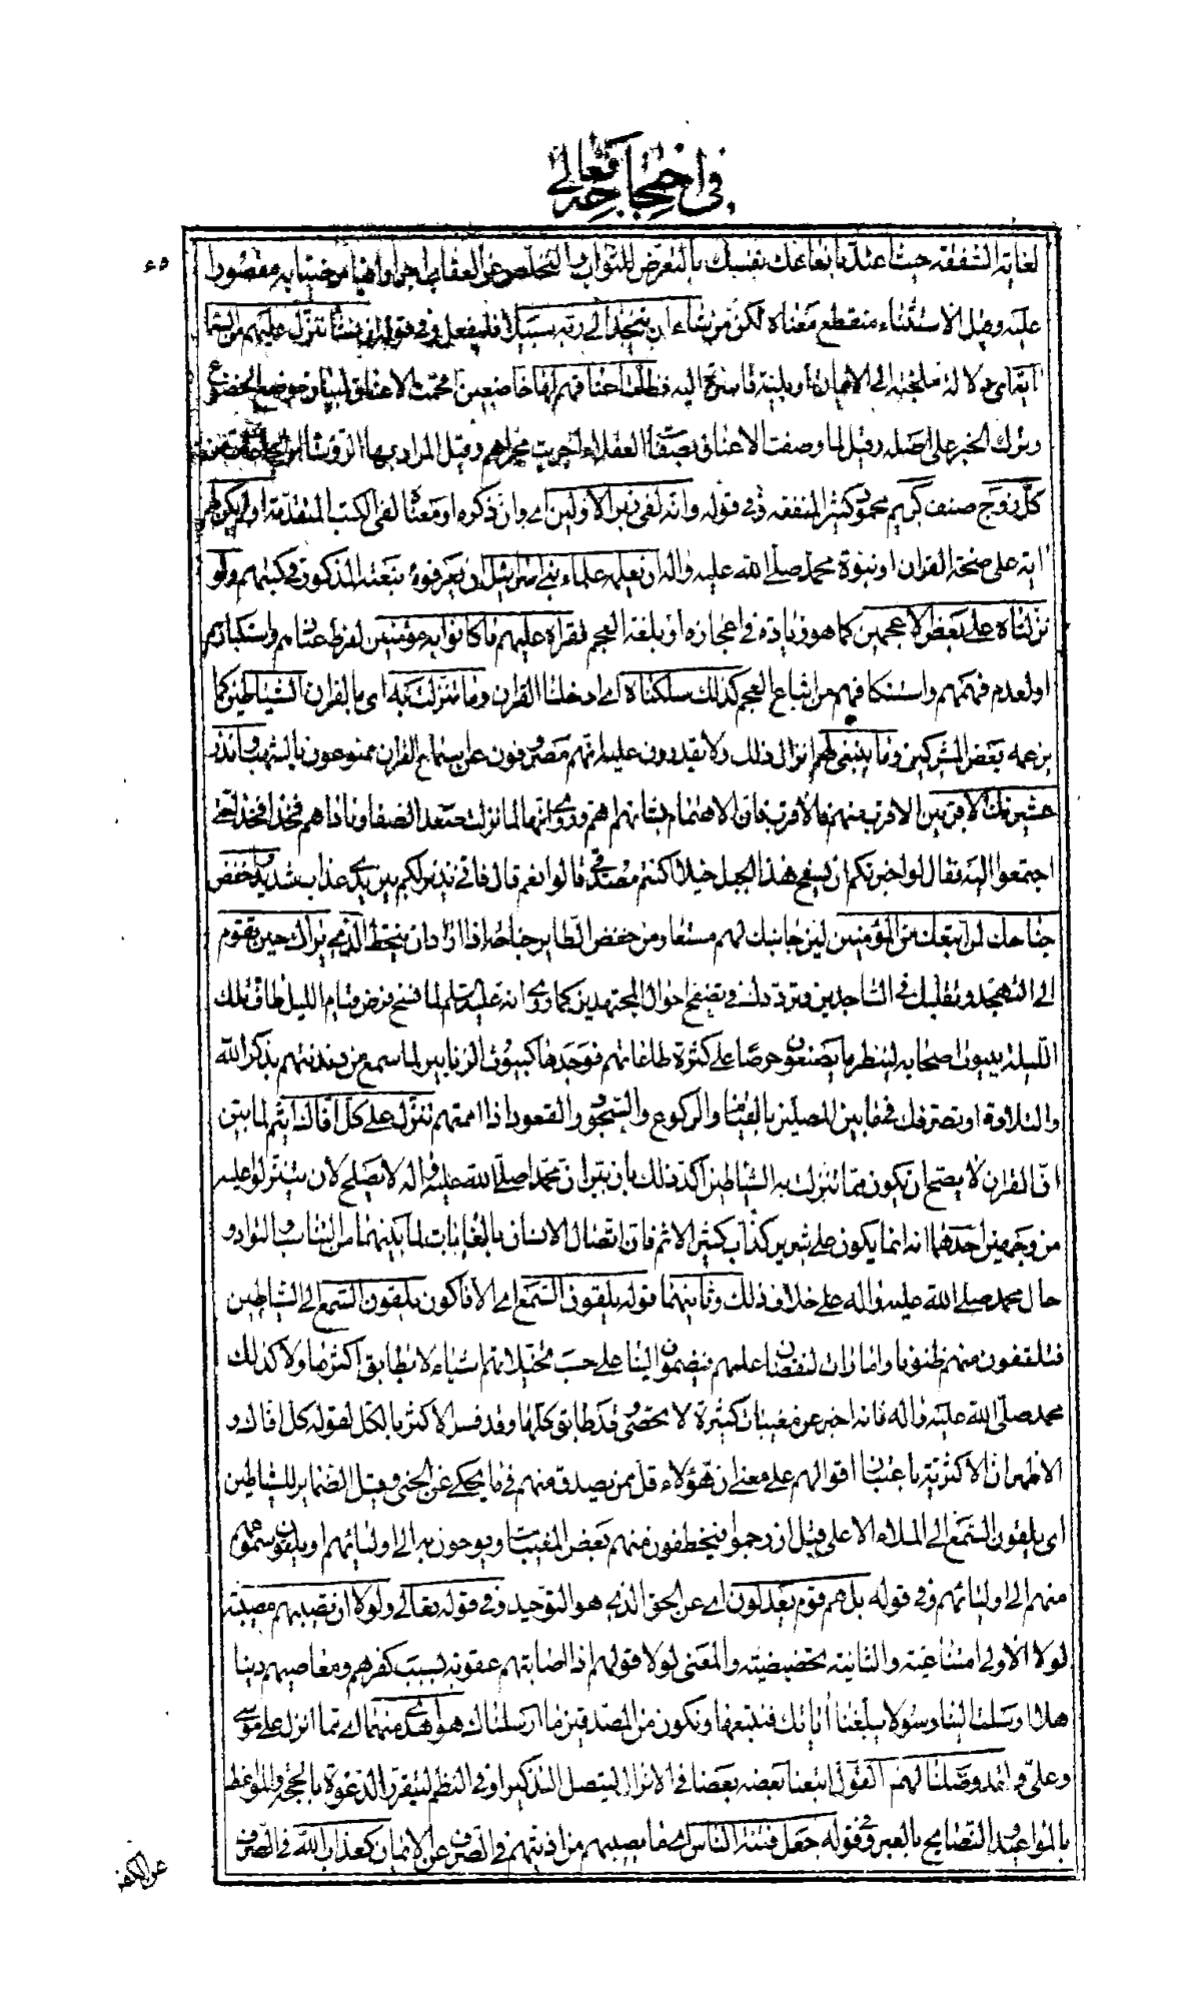 في احتجاجه تعالى
٥٥
لغاية الشفقة حيث اعتد بانفاعك نفسك بالتعرض للثواب والتخلص عن العقاب اجرا وافيا مرضيا به مقصورا
عليه وقيل الاستثناء منقطع معناه لكن من شاء ان يتخذ الى ربه سبيلا فليفعل وفي قوله ان نشأ ننزل عليهم من السماء
اية اى دلالة ملجئة الى الايمان او بلية قاسرة اليه فظلت اعناقهم لها خاضعين اقحمت الاعناق لبيان موضع الخضوع
وترك الخبر على اصله وقيل لما وصفت الاعناق بصفات العقلاء اجريت مجراهم وقيل المراد بها الرؤساء او الجماعات من
كل زوج صنف كريم محمود كثير المنفعة وفي قوله وانه لفي زبر الاولين اى وان ذكره او معناه لفي الكتب المتقدمة اولم يكن لهم
اية على صحة القران او نبوة محمد صلى الله عليه واله ان يعلمه علماء بني اسرائيل ان يعرفوه بنعته المذكور في كتبهم ولو
نزلناه على بعض الاعجمين كما هو زيادة في اعجازه او بلغة العجم فقراه عليهم ما كانوا به مؤمنين لفرط عنادهم واستكبارهم
او لعدم فهمهم واستنكافهم من اتباع العجم كذلك سلكناه اى ادخلنا القران وما تنزلت به اى بالقران الشياطين كما
يزعمه بعض المشركين وما ينبغى لهم انزال ذلك ولا يقدرون عليه انهم مصروفون عن استماع القران ممنوعون بالشهب وانذر
عشيرتك الاقربين الاقرب منهم فالاقرب فان الاهتمام بشانهم اهم وروى انها لما نزلت صعد الصفا وناداهم فخذا فخذا حتى
اجتمعوا اليه فقال لو اخبرتكم ان بسفح هذا الجبل خيلا اكنتم مصدقى قالوا نعم قال فانى نذير لكم بين يدى عذاب شديد واخفض
جناحك لمن اتبعك من المؤمنين لين جانبك لهم مستعار من خفض الطاير جناحه اذا اراد ان ينحط الذى يراك حين تقوم
الى التهجد وتقلبك في الساجدين وترددك في تصفح احوال المجتهدين كما روى انه عليه السلم لما نسخ فرض قيام الليل طاف تلك
الليلة ببيوت اصحابه لينظر ما يصنعون حرصا على كثرة طاعاتهم فوجدها كبيوت الزنابير لما سمع من دندنتهم بذكر الله
والتلاوة او تصرفك فيما بين المصلين بالقيام والركوع والسجود والقعود اذا اممتهم تنزل على كل افاك اثيم لما بين
ان القران لا يصح ان يكون مما تنزلت به الشياطين اكد ذلك بان بين ان محمدا صلى الله عليه واله لا يصلح لان يتنزلوا عليه
من وجهين احدهما انه انما يكون على شرير كذاب كثير الاثم فان اتصال الانسان بالغائبات لما بينهما من التناسب والتواد و
حال محمد صلى الله عليه واله على خلاف ذلك وثانيهما قوله يلقون السمع اى الافاكون يلقون السمع الى الشياطين
فيتلقفون منهم ظنونا وامارات لنقصان علمهم فيضمون اليها على حسب تخيلاتهم اشياء لا يطابق اكثرها ولا كذلك
محمد صلى الله عليه واله فانه اخبر عن مغيبات كثيرة لا تحصى قد طابق كلها وقد فسر الاكثر بالكل لقوله كل افاك و
الاظهر ان الاكثرية باعتبار اقوالهم على معنى ان هؤلاء قل من يصدق منهم في ما يحكى عن الجنى وقيل الضماير للشياطين
اى يلقون السمع الى الملاء الاعلى قبل ان رجموا فيخطفون منهم بعض المغيبات ويوحون به الى اوليائهم او يلقون مسموعهم
منهم الى اوليائهم وفي قوله بل هم قوم يعدلون اى عن الحق الذى هو التوحيد وفي قوله تعالى ولولا ان تصيبهم مصيبة
لولا الاولى امتناعية والثانية تحضيضية والمعنى لولا قولهم اذا اصابتهم عقوبة بسبب كفرهم ومعاصيهم ربنا
هلا ارسلت الينا رسولا يبلغنا اياتك فنتبعها ونكون من المصدقين ما ارسلناك هو اهدى منهما اى مما انزل على موسى
وعلى ولقد وصلنا لهم القول اتبعنا بعضه بعضا في الانزال ليتصل التذكير او في النظم ليتقرر الدعوة بالحجة والمواعظ
بالمواعيد والنصايح بالعبر وفي قوله جعل فتنة الناس ما يصيبهم من اذيتهم في الصرف عن الايمان كعذاب الله في الصرف
عن الكفر